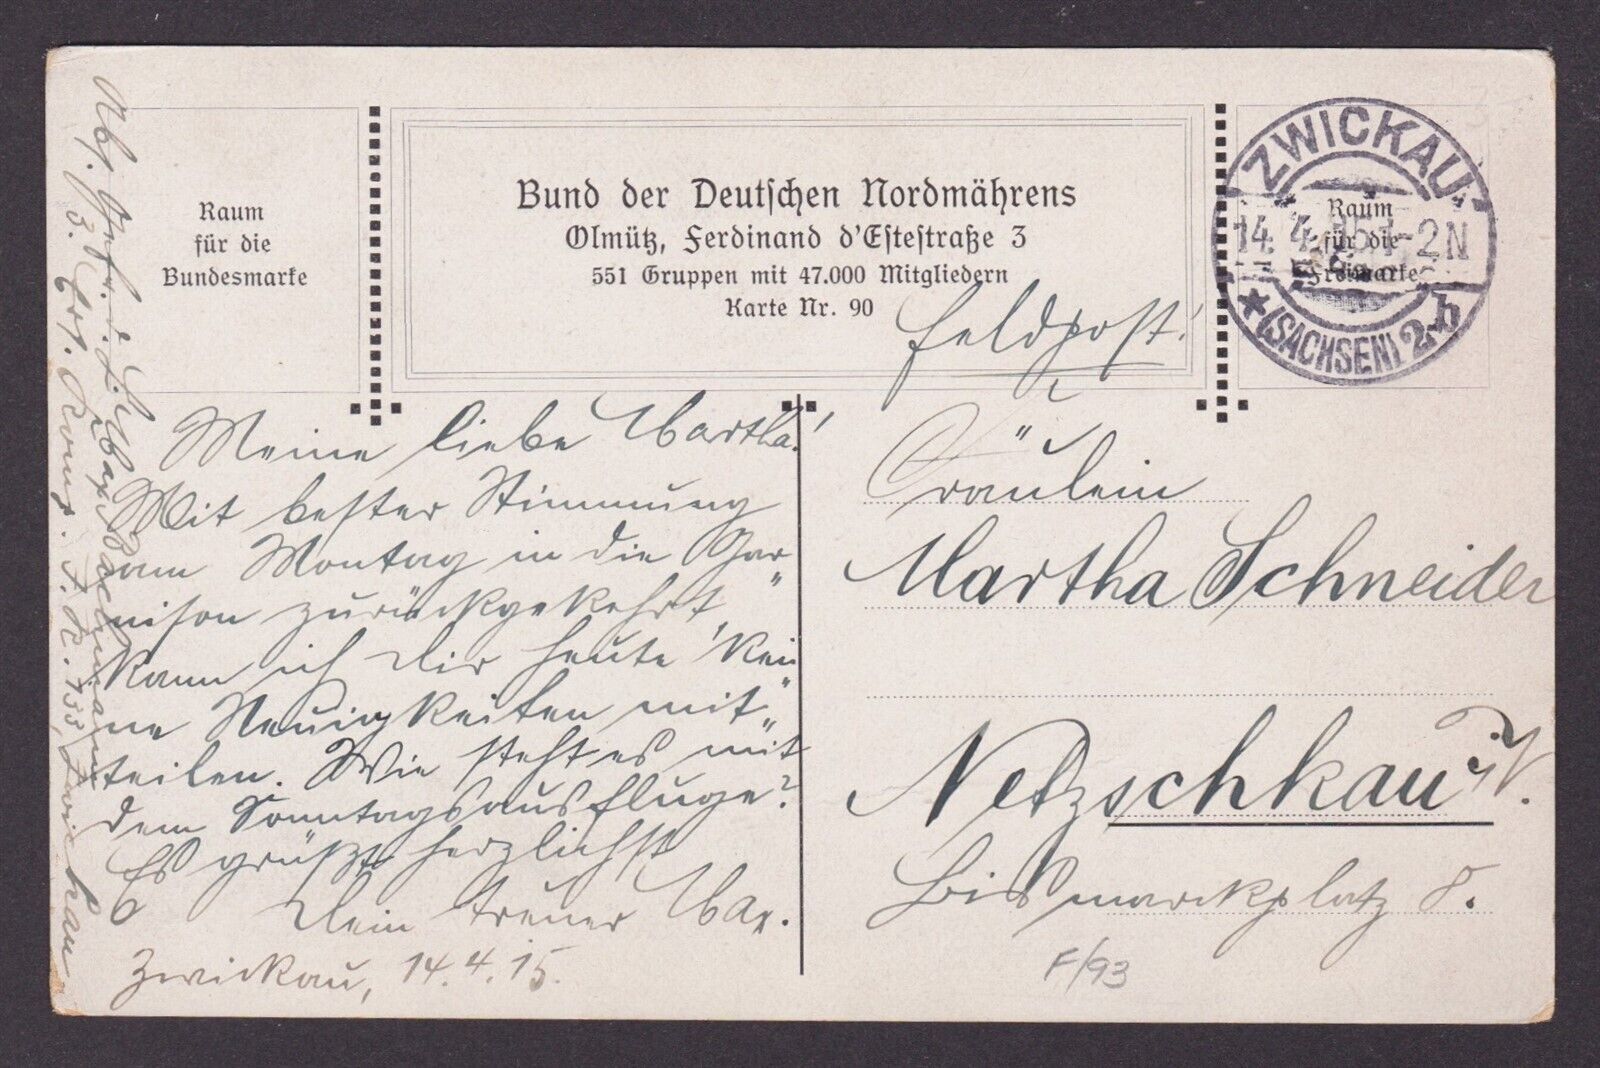 Raum
für die
Bundesmarke
Bund der Deutschen Nordmährens
Olmütz, Ferdinand d'Estestraße 3
551 Gruppen mit 47.000 Mitgliedern
Karte Nr. 90
Feldpost!
ZWICKAU
14.4.15.1-2N
* (SACHSEN) 2 b
Raum
für die
Freimarke
Meine liebe Martha!
Mit bester Stimmung
am Montag in die Gar„
nison zurückgekehrt,
kann ich Dir heute kei„
ne Neuigkeiten mit„
teilen. Wie steht es mit
dem Sonntagsausfluge?
Es grüßt herzlichst
Dein treuer Max.
Zwickau, 14.4.15.
Abs. Gefr. d. L. Max Bachmann
3. Ers. Komp. I. R. 133, Zwickau
Fräulein
Martha Schneider
Netzschkau i. V.
Bismarckplatz 8.
F/93